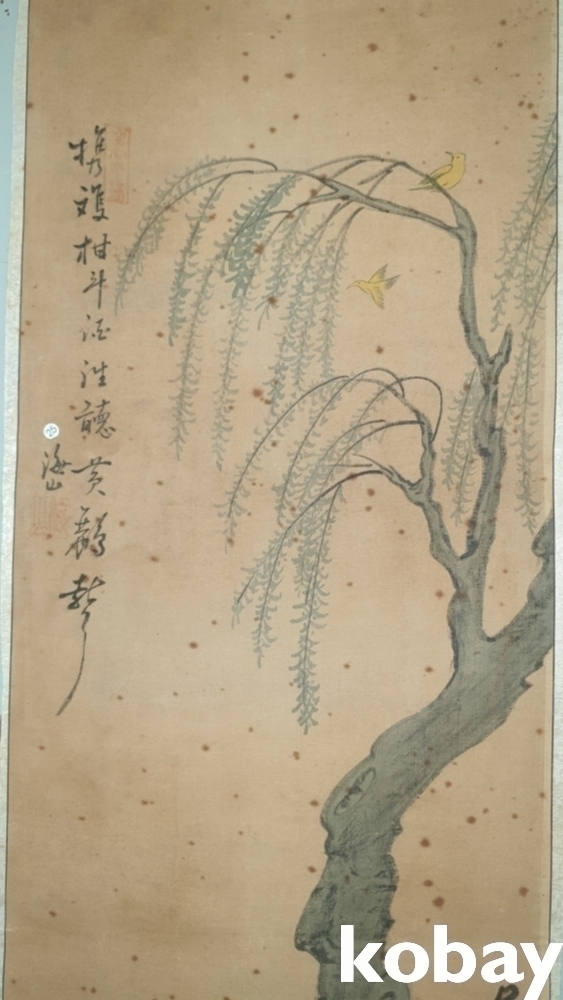 携雙柑斗酒往聽黃鸝聲
海山
kobay